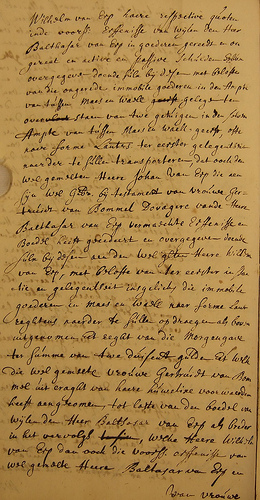 Wilhelm van Erp haere respective quoten
inde voorsz. Erffenisse van wijlen den Heer
Balthasar van Erp in goederen gereede en on
gereet en active en passive Schulden
overgegeven doende sulx bij desen met belofte
van die ongereede immobile goederen in den Ampte
van tussen Maes en Wael gelegen ten
overstaen van twee getuigen in den selven
Ampte van tussen Maes en Wael
naer forme Lants ter eerster gelegentheit
naerder te sullen transporteren, dat ooch den
wel gemelten Heere Johan van Erp die
sijn wel Geb. bij testament van vrouwe Ger-
truidt van Bommel Douagere wande Heer
Balthasar van Erp vermaeckte Erffenisse en
Boedel heeft gecedeert en overgegeven doende
sulx bij desen aen den wel Heere Willem
van Erp, met belofte van ter eerster in
tie en geliegentheit insgelicx die immobile
goederen in Maes en Wael naer forme Lant
rechtens naerder te sullen opdraegen als boven
uitgenomen het reght van die Morgengave
ter summe van twe duisent gulden als welcke
die wel gemelte vrouwe Gertruidt van Bom
mel uit craght van haere huwelixe voorwaerden
heeft aengenomen tot laste van den boedel van
wijlen den Heer Balthasar van Erp als
in het vervolgh, welcke Heere Willem
van Erp dan ooch die voorsz. erffenisse van
wel gemelte Heere Balthasar van Erp en
van vrouwe